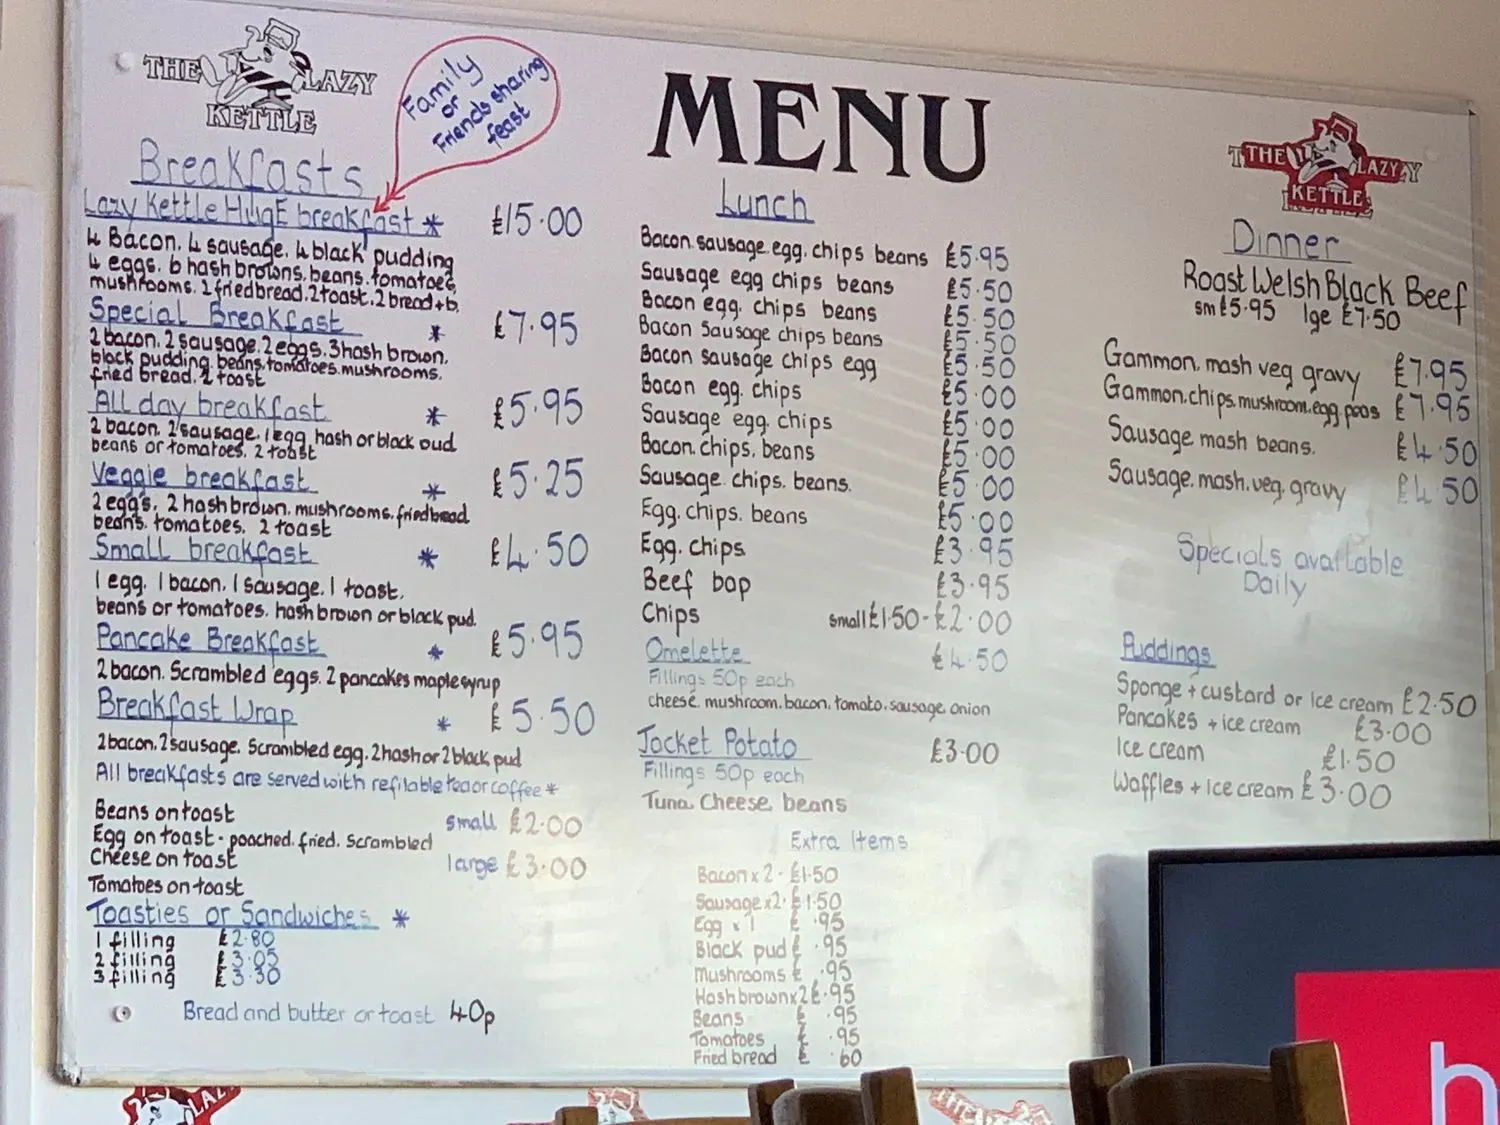 THE LAZY
KETTLE
Family
or
Friends sharing
feast
MENU
THE LAZY
KETTLE
Breakfasts
Lazy Kettle HUGE breakfast * £15.00
4 Bacon. 4 sausage. 4 black pudding
4 eggs. 6 hash browns. beans. tomatoes,
mushrooms. 2 fried bread. 2 toast. 2 bread + b.
Special Breakfast * £7.95
2 bacon. 2 sausage. 2 eggs. 3 hash brown.
black pudding. beans. tomatoes. mushrooms.
fried bread. 2 toast
All day breakfast * £5.95
2 bacon. 2 sausage. 1 egg. hash or black pud
beans or tomatoes. 2 toast
Veggie breakfast * £5.25
2 eggs. 2 hash brown. mushrooms. fried bread
beans. tomatoes. 2 toast
Small breakfast * £4.50
1 egg. 1 bacon. 1 sausage. 1 toast.
beans or tomatoes. hash brown or black pud.
Pancake Breakfast * £5.95
2 bacon. Scrambled eggs. 2 pancakes maple syrup
Breakfast Wrap * £5.50
2 bacon. 2 sausage. Scrambled egg. 2 hash or 2 black pud
All breakfasts are served with refilable tea or coffee *
Beans on toast small £2.00
Egg on toast - poached. fried. Scrambled
Cheese on toast large £3.00
Tomatoes on toast
Toasties or Sandwiches *
1 filling £2.80
2 filling £3.05
3 filling £3.30
Bread and butter or toast 40p
Lunch
Bacon. sausage. egg. chips beans £5.95
Sausage egg chips beans £5.50
Bacon egg. chips beans £5.50
Bacon Sausage chips beans £5.50
Bacon sausage chips egg £5.50
Bacon egg. chips £5.00
Sausage egg chips £5.00
Bacon. chips. beans £5.00
Sausage. chips. beans. £5.00
Egg. chips. beans £5.00
Egg. chips £3.95
Beef bap £3.95
Chips small £1.50 - £2.00
Omelette £4.50
Fillings 50p each
cheese. mushroom. bacon. tomato. sausage. onion
Jacket Potato £3.00
Fillings 50p each
Tuna. Cheese. beans
Extra Items
Bacon x 2 - £1.50
Sausage x 2 - £1.50
Egg x 1 £ .95
Black pud £ .95
Mushrooms £ .95
Hash brown x 2 £ .95
Beans £ .95
Tomatoes £ .95
Fried bread £ .60
Dinner
Roast Welsh Black Beef
sm £5.95 lge £7.50
Gammon. mash veg gravy £7.95
Gammon. chips. mushroom. egg. peas £7.95
Sausage mash beans. £4.50
Sausage. mash. veg. gravy £4.50
Specials available
Daily
Puddings
Sponge + custard or Ice cream £2.50
Pancakes + ice cream £3.00
Ice cream £1.50
Waffles + Ice cream £3.00
LAZY
THE
h